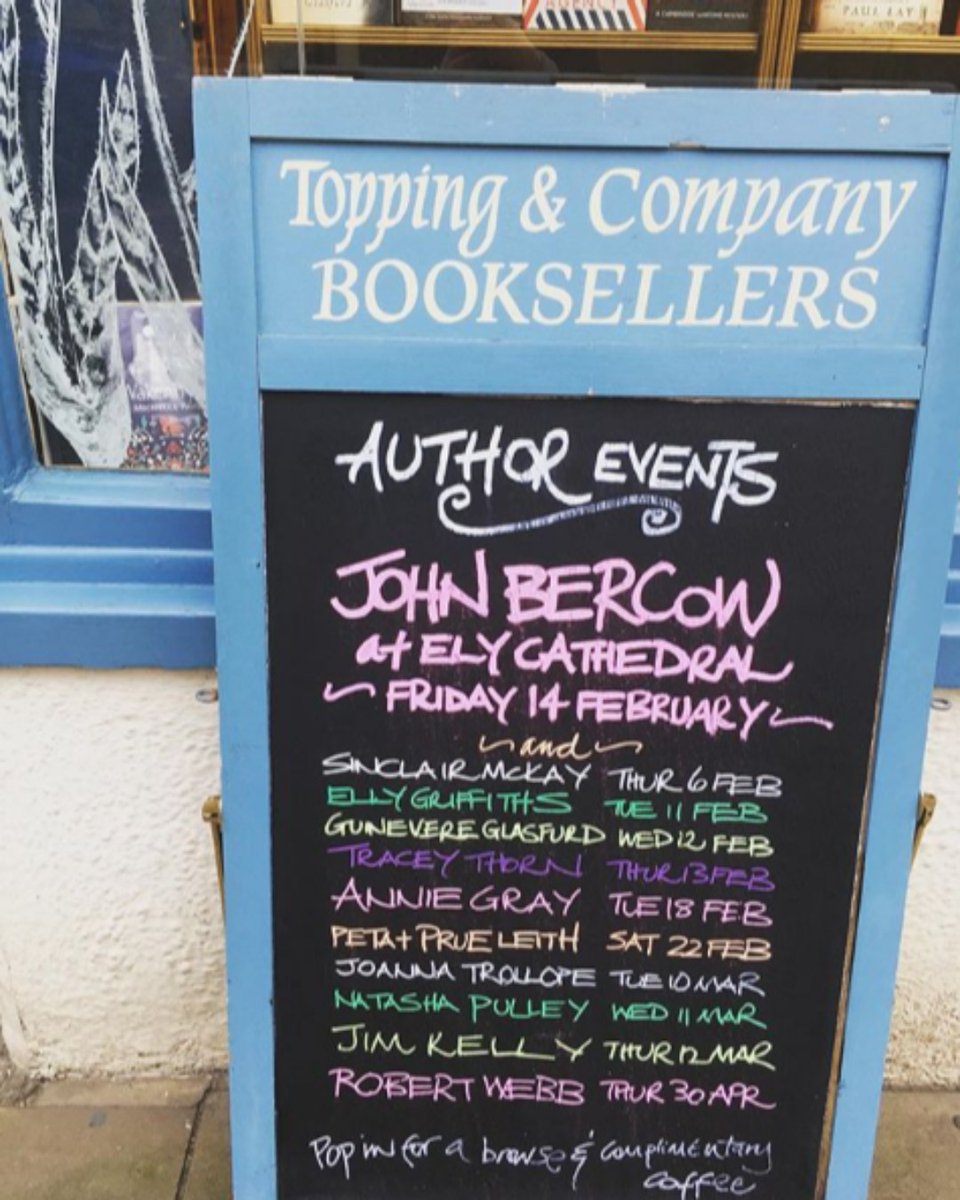 AGENCY
PAUL JAY
Topping & Company
BOOKSELLERS
AUTHOR EVENTS
JOHN BERCOW
at ELY CATHEDRAL
~ FRIDAY 14 FEBRUARY ~
~ and ~
SINCLAIR MCKAY THUR 6 FEB
ELLY GRIFFITHS TUE 11 FEB
GUINEVERE GLASFURD WED 12 FEB
TRACEY THORN THUR 13 FEB
ANNIE GRAY TUE 18 FEB
PETA + PRUE LEITH SAT 22 FEB
JOANNA TROLLOPE TUE 10 MAR
NATASHA PULLEY WED 11 MAR
JIM KELLY THUR 12 MAR
ROBERT WEBB THUR 30 APR
Pop in for a browse & complimentary
coffee